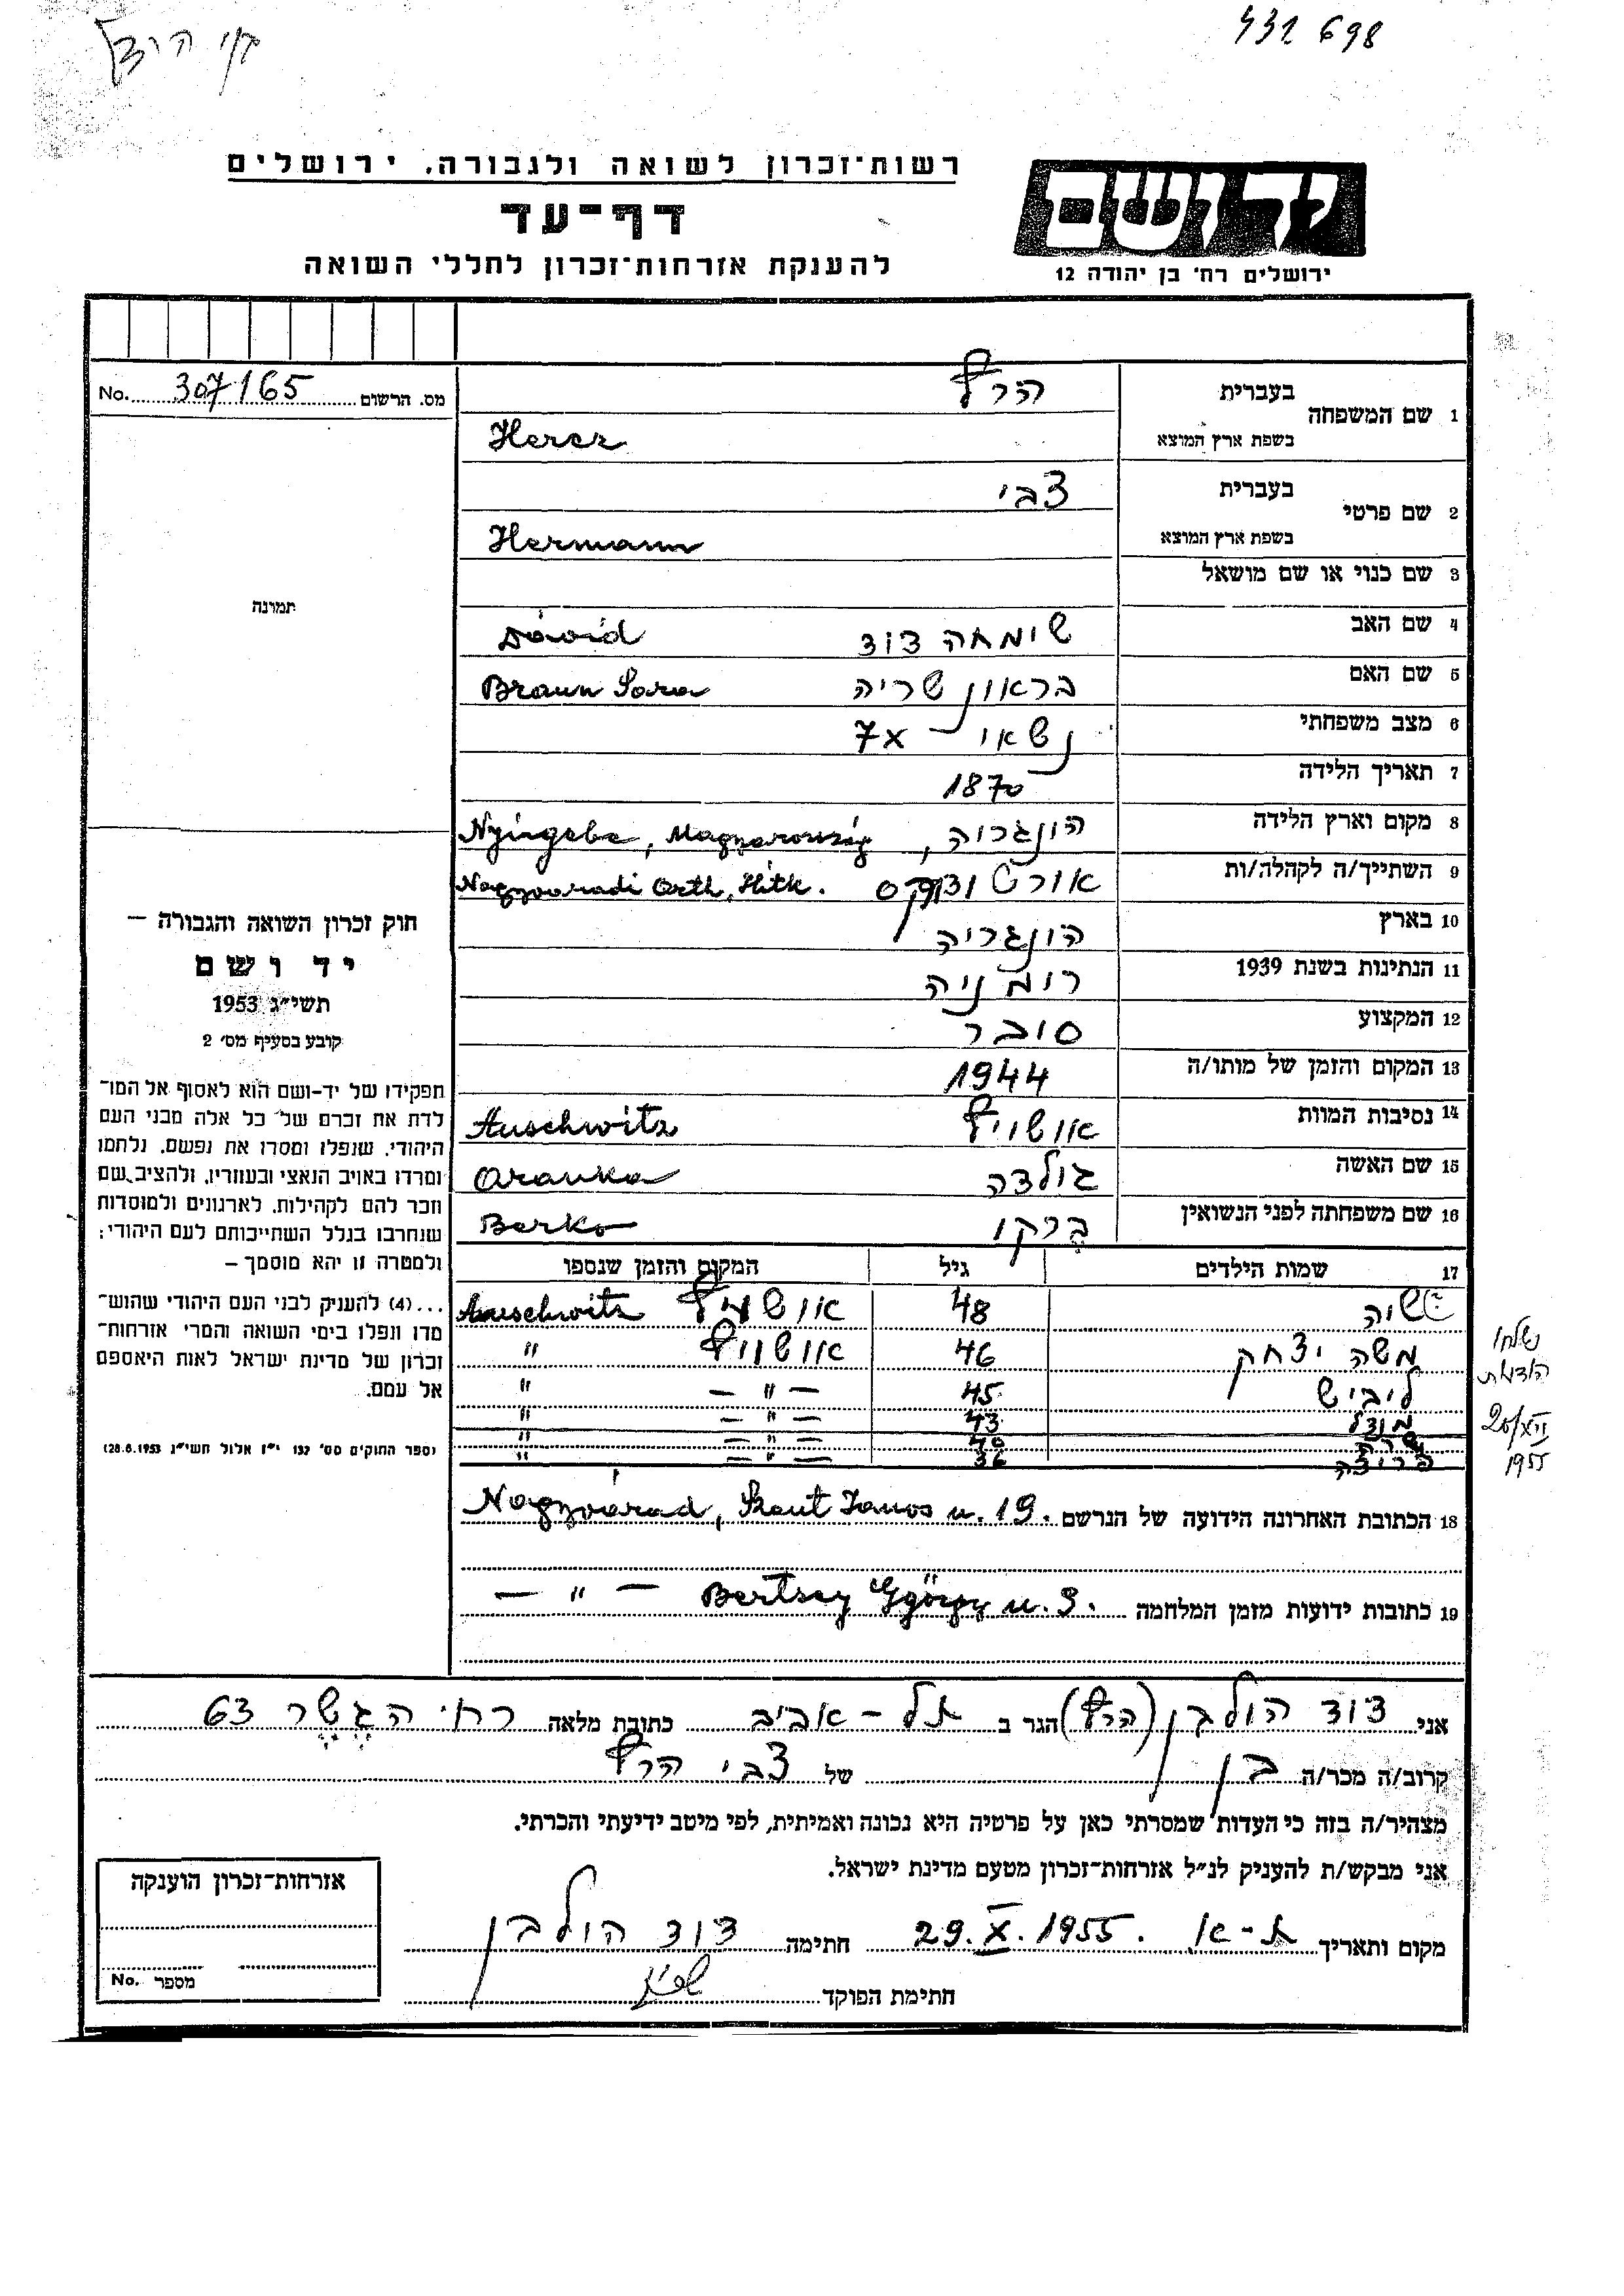 432 698
רשות־זכרון לשואה ולגבורה. ירושלים
יד ושם
ירושלים רח' בן יהודה 12
דף־עד
להענקת אזרחות־זכרון לחללי השואה
No. 307165 מס. הרשום
1 שם המשפחה
בעברית הרץ
בשפת ארץ המוצא Hercz
2 שם פרטי
בעברית צבי
בשפת ארץ המוצא Hermann
3 שם כנוי או שם מושאל
4 שם האב שימחה דוד Dávid
5 שם האם בראון שריה Braun Sara
6 מצב משפחתי נשאוי – 7x
7 תאריך הלידה 1870
8 מקום וארץ הלידה הונגרוה, Nyirgebe, Magyarország
9 השתייך/ה לקהלה/ות אורט Nagyváradi Orth. Hitk.
10 בארץ הונגריה
11 הנתינות בשנת 1939 רומניה
12 המקצוע סובר
13 המקום והזמן של מותו/ה 1944
14 נסיבות המוות אושויץ Auschwitz
15 שם האשה גולדה Aranka
16 שם משפחתה לפני הנשואין ברקו Berko
17 שמות הילדים גיל המקום והזמן שנספו
48 אושויץ Auschwitz
משה יצחק 46 אושויץ "
ליביש 45 — " — "
מנדל 43 — " — "
שרה 40 — " — "
פריידה 36 — " — "
נשלחו
הודעות
20/XII
1955
18 הכתובת האחרונה הידועה של הנרשם Nagyvárad, Szent János u. 19.
19 כתובות ידועות מזמן המלחמה Bertsey György u. 3. — " —
תמונה
חוק זכרון השואה והגבורה –
יד ושם
תשי״ג 1953
קובע בסעיף מס' 2
תפקידו של יד-ושם הוא לאסוף אל המו־
לדת את זכרם של כל אלה מבני העם
היהודי, שנפלו ומסרו את נפשם, נלחמו
ומרדו באויב הנאצי ובעוזריו, ולהציב שם
וזכר להם לקהילות, לארגונים ולמוסדות
שנחרבו בגלל השתייכותם לעם היהודי;
ולמטרה זו יהא מוסמך –
...(4) להעניק לבני העם היהודי שהוש־
מדו ונפלו בימי השואה והמרי אזרחות־
זכרון של מדינת ישראל לאות היאספם
אל עמם.
(ספר החוקים מס' 132 י״ז אלול תשי״ג 28.8.1953)
אני דוד הולבן (הרץ) הגר ב תל – אביב כתובת מלאה רח' הגשר 63
קרוב/ה מכר/ה בן של צבי הרץ
מצהיר/ה בזה כי העדות שמסרתי כאן על פרטיה היא נכונה ואמיתית, לפי מיטב ידיעתי והכרתי.
אני מבקש/ת להעניק לנ״ל אזרחות־זכרון מטעם מדינת ישראל.
מקום ותאריך ת-א 29.X.1955. חתימה דוד הולבן
חתימת הפוקד
אזרחות־זכרון הוענקה
מספר No.